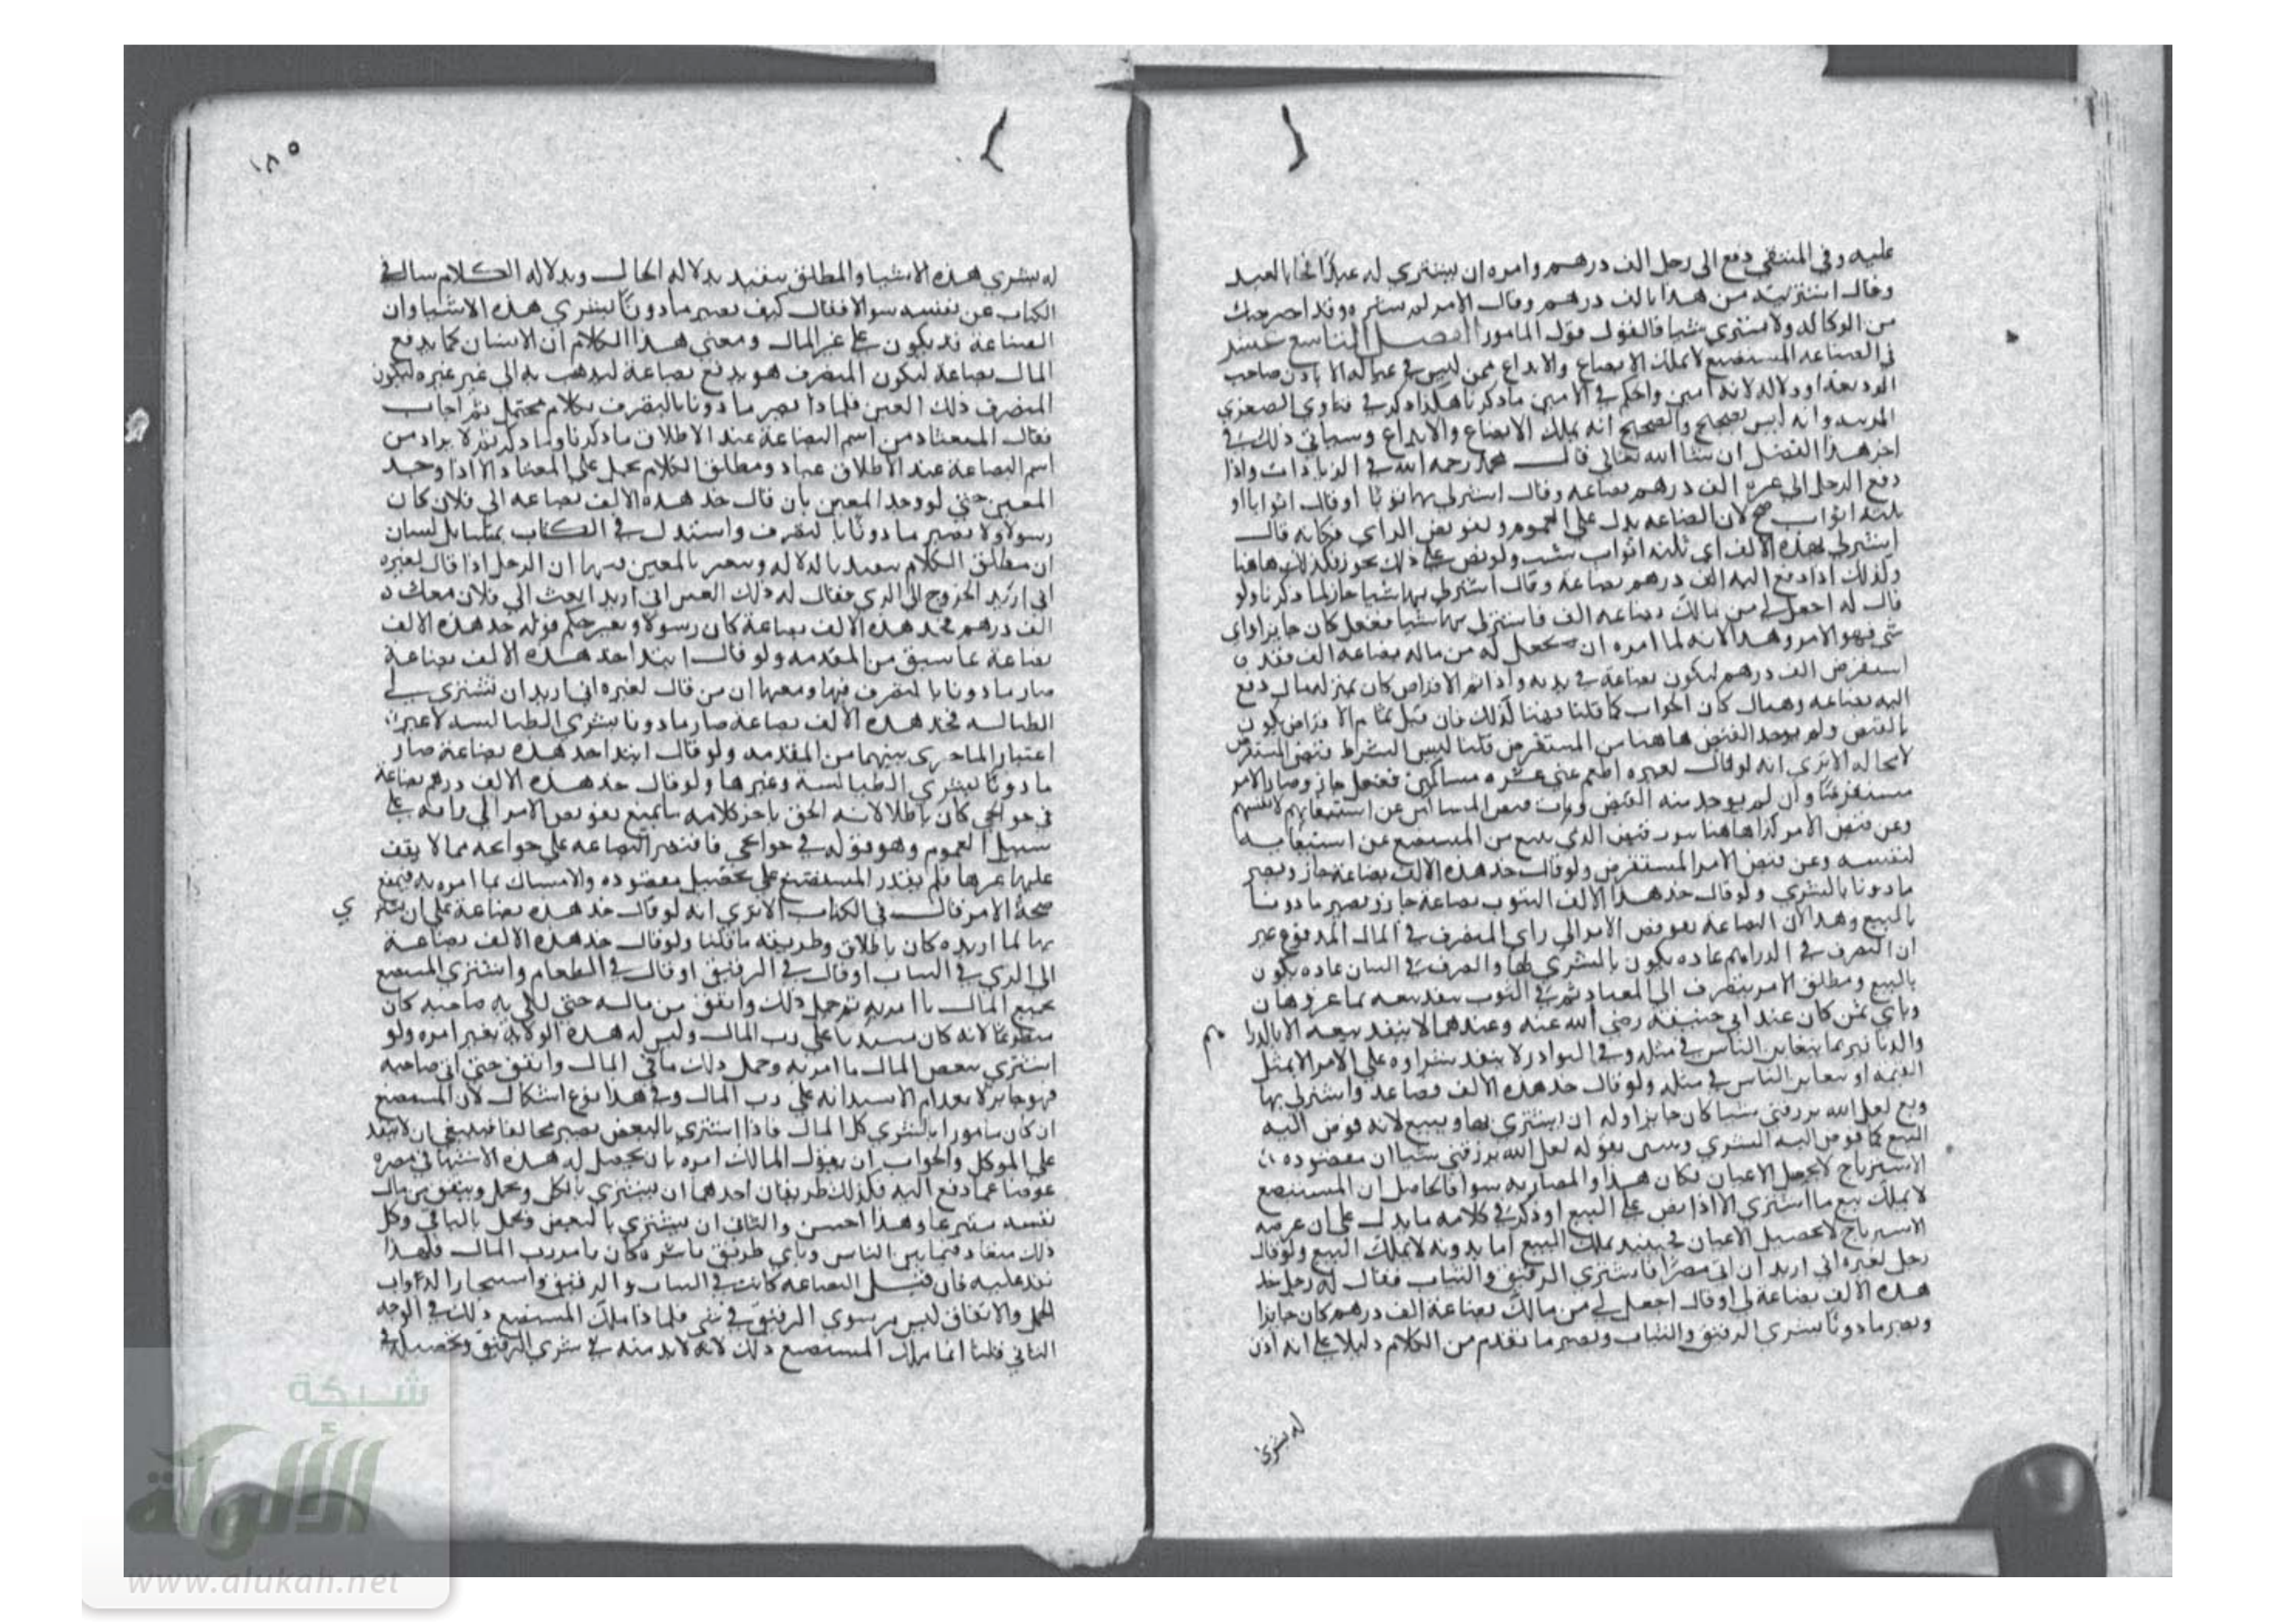 عليه وفي المنتقى دفع الى رجل الف درهم وامره ان يشتري له عبدا بها العبد
وقال اشتريته من هذا بالف درهم وقال الامر لم وقد اخرجتك
من الوكالة ولا تشتري شيا فالقول قول المامور الفصل التاسع عشر
في البضاعه المستبضع لا يملك الابضاع والايداع ممن ليس في عياله الا باذن صاحب
او دلاله لانه امين والحكم في الامين ما ذكرنا هكذا ذكر في فتاوى الصغرى
وانه ليس بصحيح والصحيح انه يملك الابضاع والايداع وسياتي ذلك في
اخر هذا الفصل ان شا الله تعالى قال محمد رحمه الله في الزيادات واذا
دفع الرجل الى غيره الف درهم بضاعه وقال اشتر لي بها ثوبا او قال اثوابا او
ثلثه اثواب صح لان البضاعه يدل على العموم وتفويض الراي فكانه قال
اشتر لي بهذه الالف اي ثلثه اثواب شيت ولو نص على ذلك يجوز فكذلك هاهنا
وكذلك اذا دفع اليه الف درهم بضاعة وقال اشتر لي بها شيا جاز لما ذكرنا ولو
قال له اجعل لي من مالك بضاعه الف فاشتر لي بها شيا ففعل كان جايزا واي
شي فهو للامر وهذا لانه لما امره ان يجعل له من ماله بضاعه الف فقد
استقرض الف درهم ليكون بضاعة في يديه واذا تم الاقراض كان بمنزله مال دفع
اليه بضاعه وهناك كان الجواب كما قلنا فهنا كذلك فان قيل تمام الاقراض يكون
بالقبض ولم يوجد القبض هاهنا من المستقرض قلنا ليس الشرط قبض المستقرض
لا محاله الا ترى انه لو قال لغيره اطعم عني عشره مساكين ففعل جاز وصار الامر
مستقرضا وان لم يوجد منه القبض وناب قبض المساكين عن استيفائهم لانفسهم
وعن قبض الامر كذا هاهنا ينوب قبض الذي يقع من المستبضع عن استيفايه
لنفسه وعن قبض الامر المستقرض ولو قال خذ هذه الالف بضاعة جاز ويصير
ماذونا بالشرى ولو قال خذ هذا الثوب بضاعة جاز ويصير ماذونا
بالبيع وهذا لان البضاعة تفويض الامر الى راي المتصرف في المال المدفوع غير
ان التصرف في الدراهم عاده يكون بالشرى بها والتصرف في الثياب عاده يكون
بالبيع ومطلق الامر يتصرف الى المعتاد ثم في الثوب ينفذ بيعه بما عز وهان
وباي ثمن كان عند ابي حنيفة رضي الله عنه وعندهما لا ينفذ بيعه الا بالدرا هم
والدنانير بما يتغابن الناس في مثله وفي النوادر لا ينفذ شراوه على الامر الا بمثل
القيمه او يتغابن الناس في مثله ولو قال خذ هذه الالف بضاعة واشتر لي بها
وبع لعل الله يرزقني شيا كان جايزا وله ان يشتري بها ويبيع لانه فوض اليه
البيع كما فوض اليه الشرى وبين بقوله لعل الله يرزقني شيا ان مقصوده
الاسترباح لا تحصيل الاعيان فكان هذا والمضاربه سوا فالحاصل ان المستبضع
لا يملك بيع ما اشترى الا اذا نص على البيع او ذكر في كلامه ما يدل على ان غرضه
الاسترباح لا تحصيل الاعيان فحينئذ يملك البيع اما بدونه لا يملك البيع ولو قال
رجل لغيره اني اريد ان اتي مصرا فاشتري الرقيق والثياب فقال له رجل خذ
هذه الالف بضاعة لي او قال اجعل لي من مالك بضاعة الف درهم كان جايزا
ويصير ماذونا بشرى الرقيق والثياب ويصير ما تقدم من الكلام دليلا على انه اذن
له بشرى
١٨٥
له بشرى هذه الاشيا والمطلق يتقيد بدلاله الحال وبدلاله الكلام سال في
الكتاب عن نفسه سوالا فقال كيف يصير ماذونا بشرى هذه الاشيا وان
البضاعة قد يكون على غير المال ومعنى هذا الكلام ان الانسان كما يدفع
المال بضاعة ليكون المتصرف هو يدفع بضاعة ليذهب به الى غيره ليكون
المتصرف ذلك الغير فلماذا يصير ماذونا بالتصرف بكلام محتمل ثم اجاب
فقال المعتاد من اسم البضاعة عند الاطلاق ما ذكرنا وما ذكرتم لا يراد من
اسم البضاعة عند الاطلاق عباد ومطلق الكلام يحمل على المعتاد الا اذا وجد
المعين حتى لو وجد المعين بان قال خذ هذه الالف بضاعه الى فلان كان
رسولا ولا يصير ماذونا بالتصرف واستدل في الكتاب بمسايل لبيان
ان مطلق الكلام يتقيد بالدلاله ويتغير بالمعين منها ان الرجل اذا قال لغيره
اني اريد الخروج الى الري فقال له ذلك الغير اني اريد ابعث الى فلان معك
الف درهم فخذ هذه الالف بضاعة كان رسولا وتغير حكم قوله خذ هذه الالف
بضاعة بما سبق من المقدمه ولو قال ابتداء خذ هذه الالف بضاعة
صار ماذونا بالتصرف فيها ومنها ان من قال لغيره اني اريد ان تشتري لي
الطيالسه فخذ هذه الالف بضاعة صار ماذونا بشرى الطيالسه لا غير
اعتبارا لما جرى بينهما من المقدمه ولو قال ابتداء خذ هذه بضاعة صار
ماذونا بشرى الطيالسة وغيرها ولو قال خذ هذه الالف درهم بضاعة
في حوايجي كان باطلا لانه الحق باخر كلامه ما يمنع تفويض الامر الى رايه على
سبيل العموم وهو قوله في حوايجي فاقتصر البضاعه على حوايجه مما لا يقف
عليها غيره فلم يقدر المستبضع على تحصيل مقصوده والامساك بما امره به فيمنع
صحة الامر قال في الكتاب الا ترى انه لو قال خذ هذه بضاعة على ان تشتري
بها لما اريده كان باطلا وطريقه ما قلنا ولو قال خذ هذه الالف بضاعة
الى الري في الثياب او قال في الرقيق او قال في الطعام واشترى المستبضع
بجميع المال ما امر به ثم حمل ذلك وانفق من ماله حتى اتى به صاحبه كان
متطوعا لانه كان مستدينا على رب المال وليس له هذه الولاية بغير امره ولو
اشترى ببعض المال ما امر به وحمل ذلك ما بقي المال وانفق حتى اتى صاحبه
فهو جايز لانعدام الاستدانه على رب المال وفي هذا نوع اشكال لان المستبضع
ان كان مامورا بالشرى كل المال فاذا اشترى بالبعض يصير مخالفا فينبغي ان لا ينفذ
على الموكل والجواب ان يقول المالك امره بان يحصل له هذه الاشيا في مصره
عوضا عما دفع اليه فلذلك طريقان احدهما ان يشتري بالكل ويحمل وينفق من مال
نفسه متبرعا وهذا احسن والثاني ان يشتري بالبعض ويحمل بالباقي وكل
ذلك معتاد فيما بين الناس وباي طريق باشره كان بامر رب المال فلهذا
نفذ عليه فان قيل البضاعه كانت في الثياب والرقيق واستيجار الدواب
للحمل والانفاق ليس من شرى الرقيق في شي فلماذا ملك المستبضع ذلك في الوجه
الثاني قلنا انما ملك المستبضع ذلك لانه لا بد منه في شرى الرقيق وتحصيله في
شبكة
الألوكة
www.alukah.net